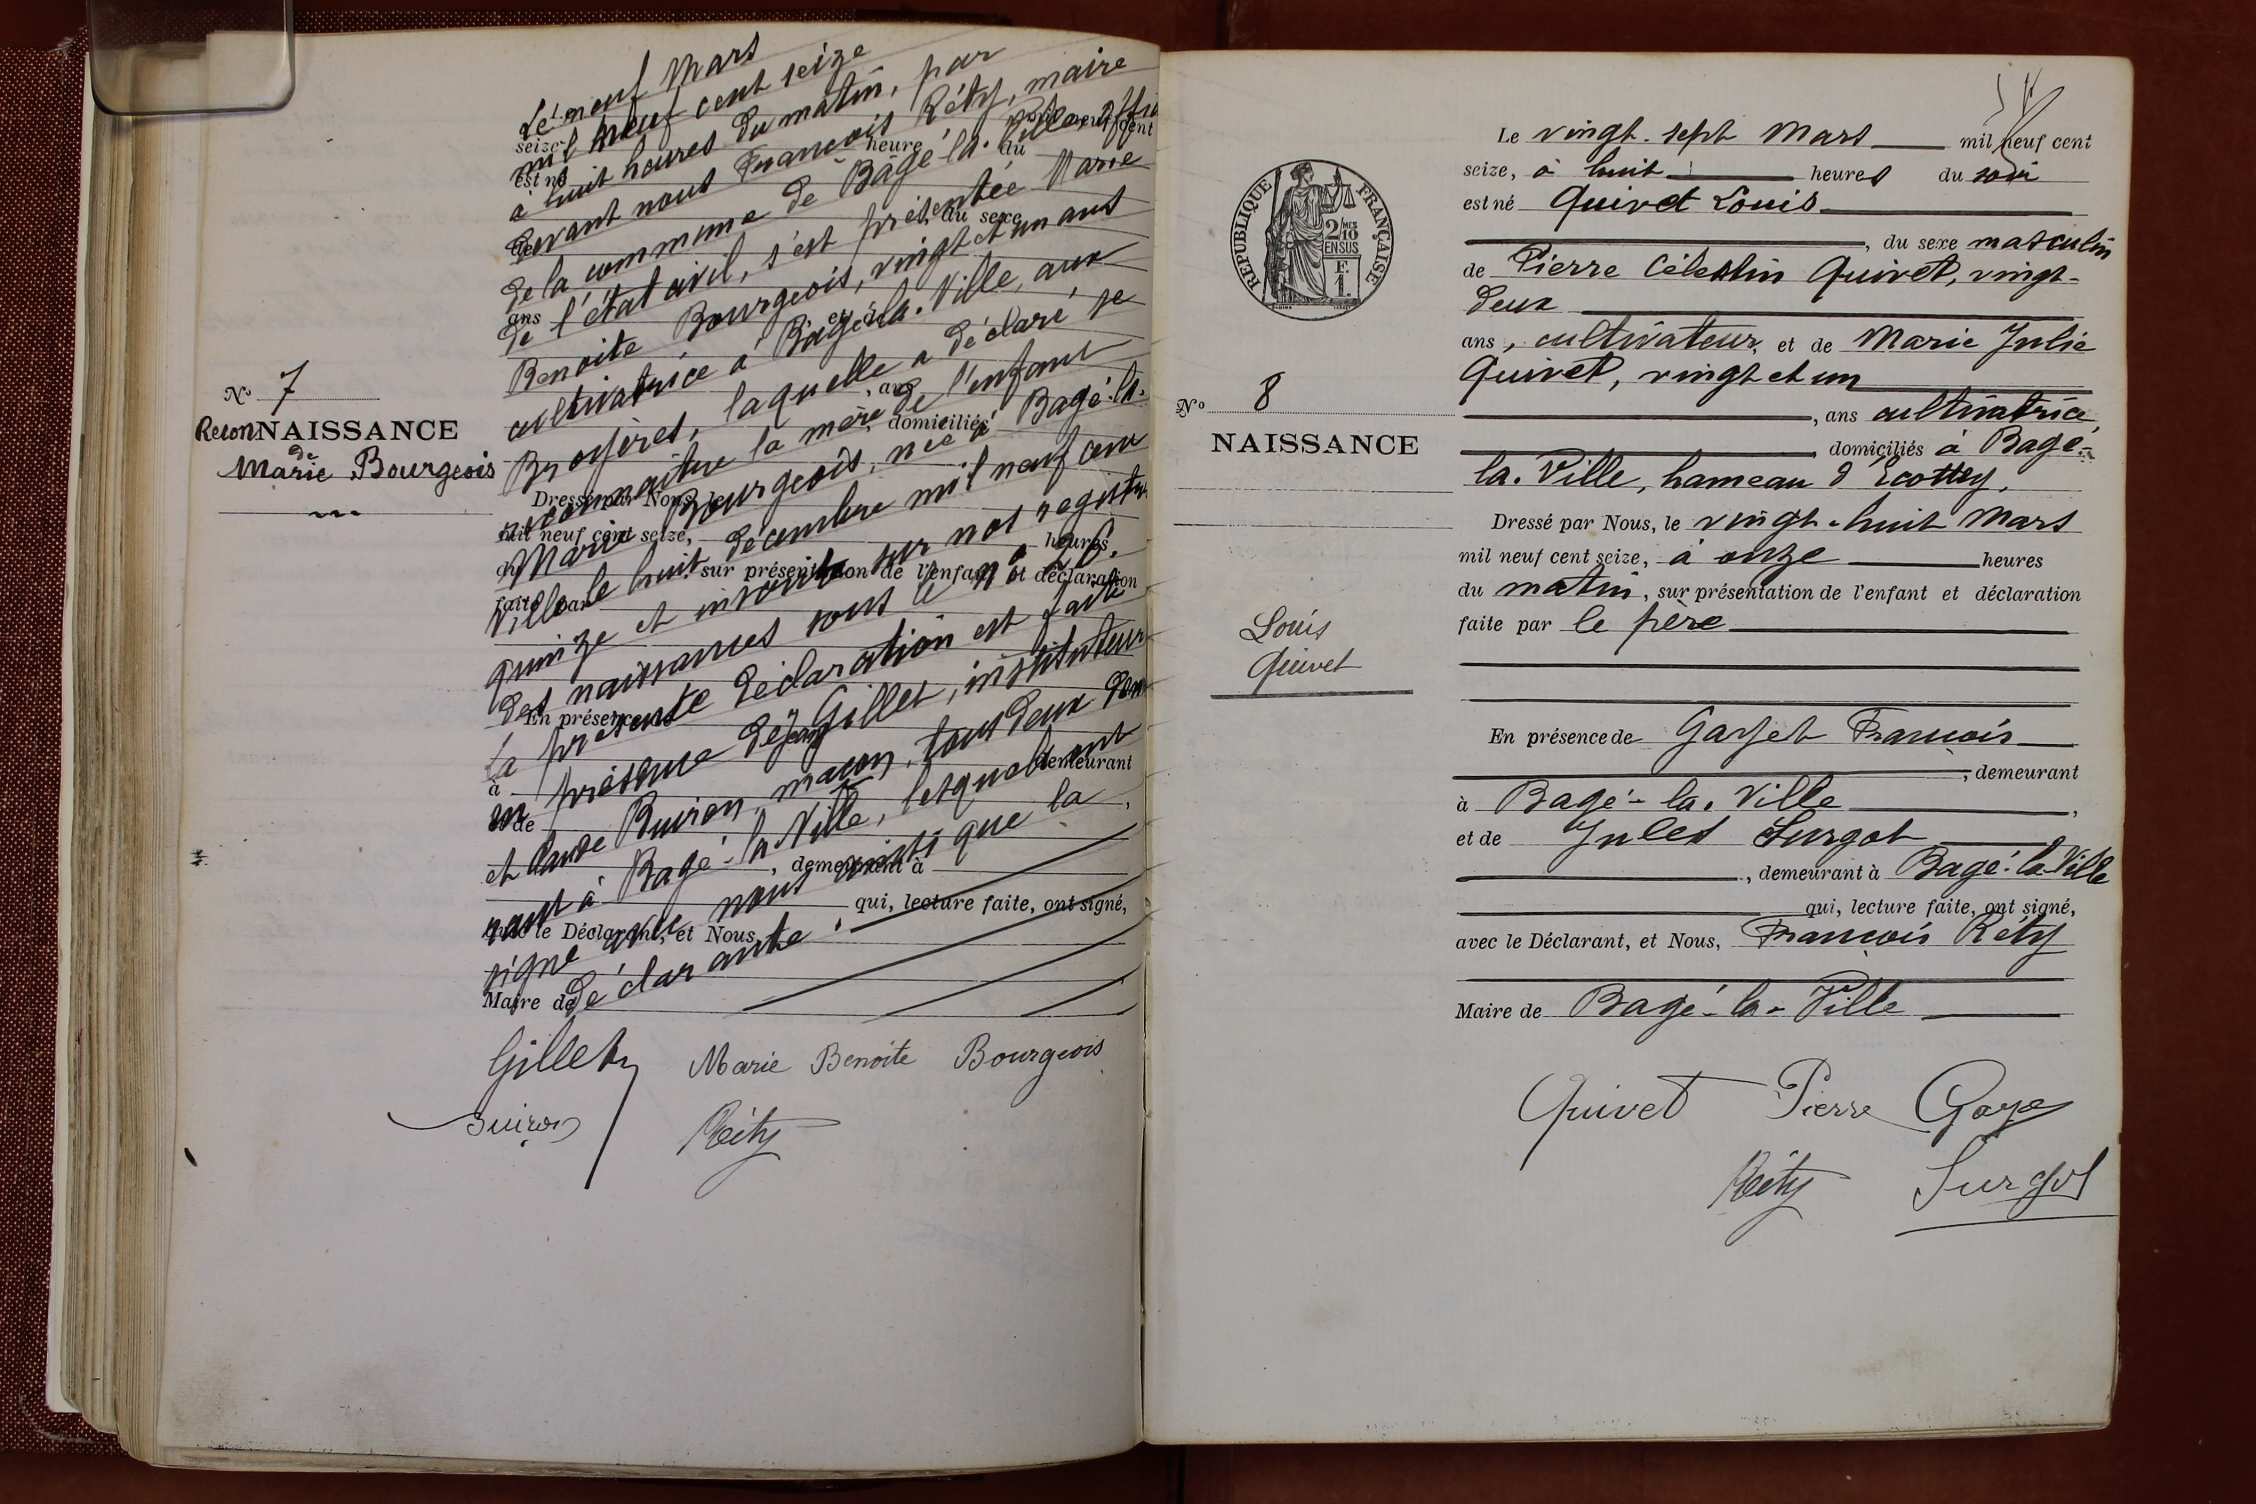 Nº 7
ReconNAISSANCE
de
Marie Bourgeois
Le neuf Mars
mil neuf cent seize
à huit heures du matin, par
devant nous François Réty, maire
de la commune de Bâgé-la-Ville, offi
de l'état civil, s'est présentée Marie
Benoite Bourgeois, vingt et un ans
cultivatrice à Bâgé-la-Ville, aux
Bruyères, laquelle a déclaré se
reconnaitre la mère de l'enfant
Marie Bourgeois, née à Bagé-la-
Ville le huit décembre mil neuf cent
quinze et inscrite sur nos registres
des naissances sous le nº 26.
La présente déclaration est faite
en présence de Jean Gillet, instituteur
et Claude Buiron, maçon, tous deux demeu
rant à Bagé-la-Ville, lesquels ont
signé avec nous ainsi que la
déclarante.
seize
est né
heure
du
du sexe
ans
domiciliés
Dressé par Nous, le
mil neuf cent seize,
heures
sur présentation de l'enfant et déclaration
faite par
En présence
à
demeurant
et de
, demeurant à
qui, lecture faite, ont signé,
avec le Déclarant, et Nous,
Maire de
Gillet Marie Benoite Bourgeois
Buiron Réty
REPUBLIQUE FRANÇAISE
2/10 MES
EN SUS
F.
1.
Nº 8
NAISSANCE
Louis
Quivet
Le vingt-sept Mars mil neuf cent
seize, à huit heures du soir
est né Quivet Louis
, du sexe masculin
de Pierre Célestin Quivet, vingt-
deux
ans, cultivateur, et de Marie Julie
Quivet, vingt et un
, ans cultivatrice,
domiciliés à Bagé-
la-Ville, hameau d'Ecottey.
Dressé par Nous, le vingt-huit Mars
mil neuf cent seize, à onze heures
du matin, sur présentation de l'enfant et déclaration
faite par le père
En présence de Gayet François
, demeurant
à Bagé-la-Ville,
et de Jules Surgot
, demeurant à Bagé-la-Ville
qui, lecture faite, ont signé,
avec le Déclarant, et Nous, François Réty
Maire de Bagé-la-Ville
Quivet Pierre Gaye
Réty Surgot